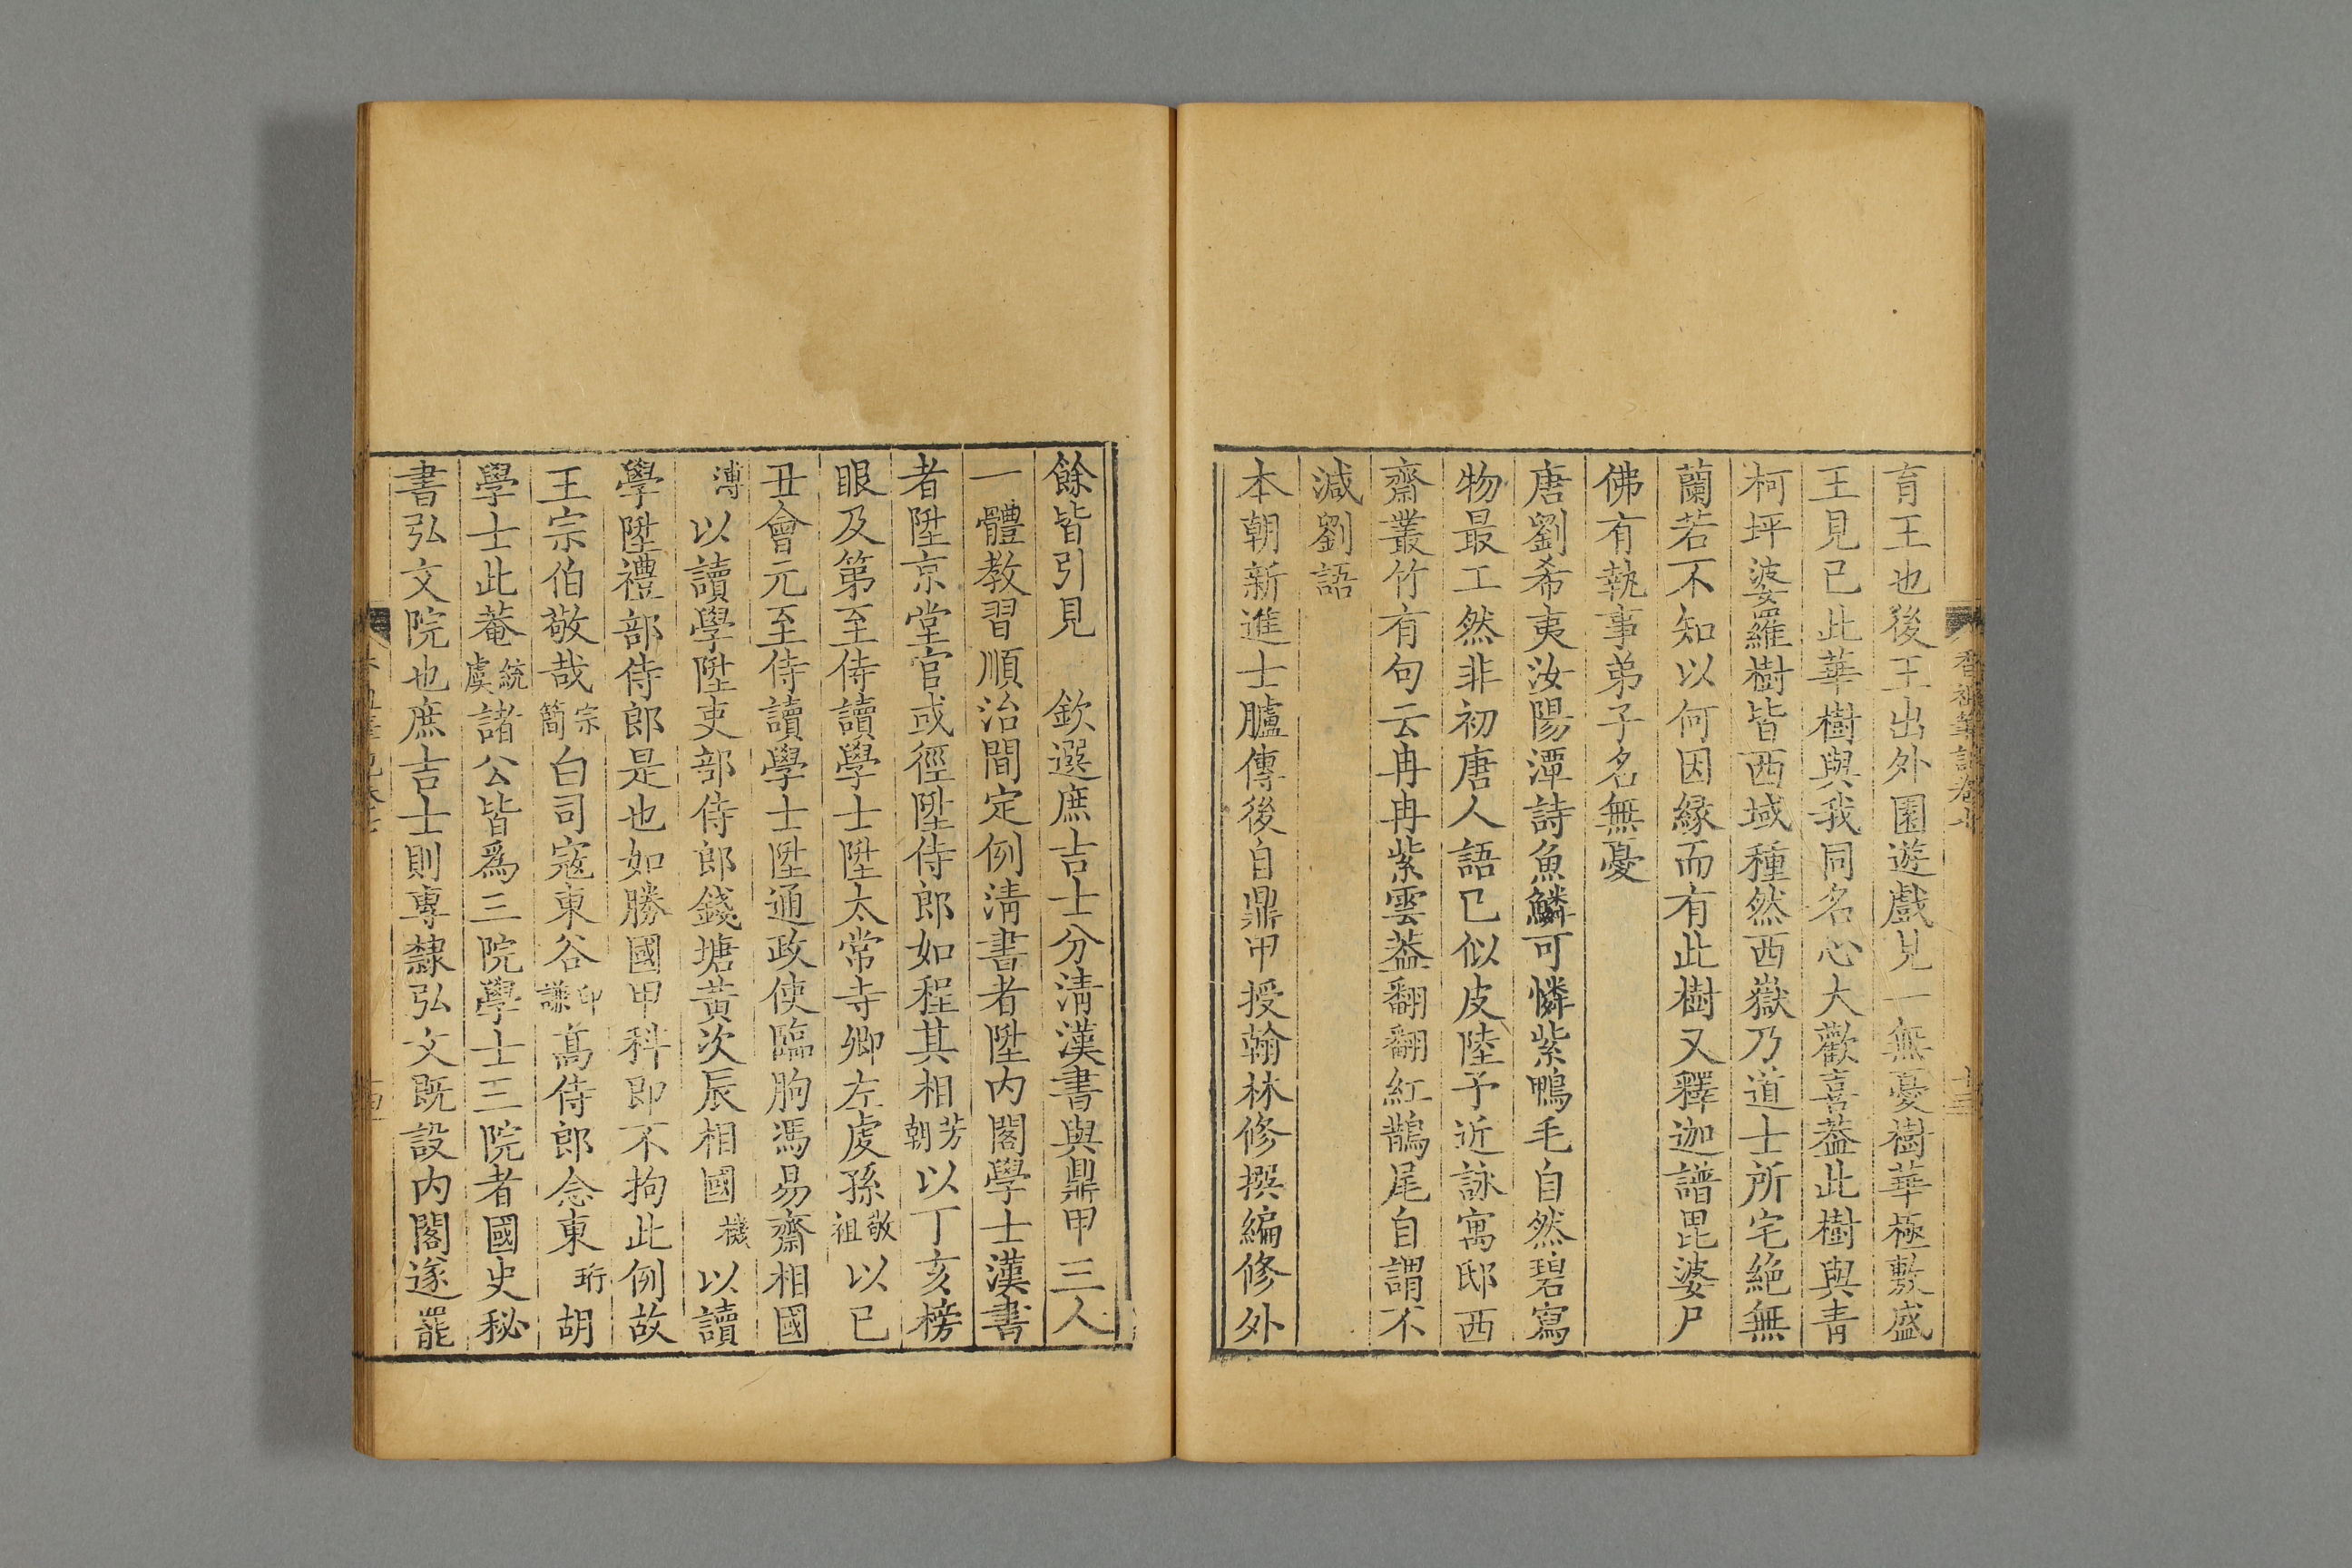 香祖筆記卷十
十三
育王也後王出外園遊戲見一無憂樹華極敷盛
王見已此華樹與我同名心大歡喜葢此樹與青
柯坪婆羅樹皆西域種然西嶽乃道士所宅絶無
蘭若不知以何因緣而有此樹又釋迦譜毘婆尸
佛有執事弟子名無憂
唐劉希夷汝陽潭詩魚鱗可憐紫鴨毛自然碧寫
物最工然非初唐人語已似皮陸予近詠寓邸西
齋叢竹有句云冉冉紫雲葢翻翻紅鵲尾自謂不
減劉語
本朝新進士臚傳後自鼎甲授翰林修撰編修外
餘皆引見　欽選庶吉士分清漢書與鼎甲三人
一體教習順治間定例清書者陞内閣學士漢書
者陞京堂官或徑陞侍郎如程其相芳朝以丁亥榜
眼及第至侍讀學士陞太常寺卿左虔孫敬祖以已
丑會元至侍讀學士陞通政使臨朐馮易齋相國
溥以讀學陞吏部侍郎錢塘黃次辰相國機以讀
學陞禮部侍郎是也如勝國甲科即不拘此例故
王宗伯敬哉宗簡白司寇東谷印謙高侍郎念東珩胡
學士此菴統虞諸公皆爲三院學士三院者國史秘
書弘文院也庶吉士則專隸弘文既設内閣遂罷